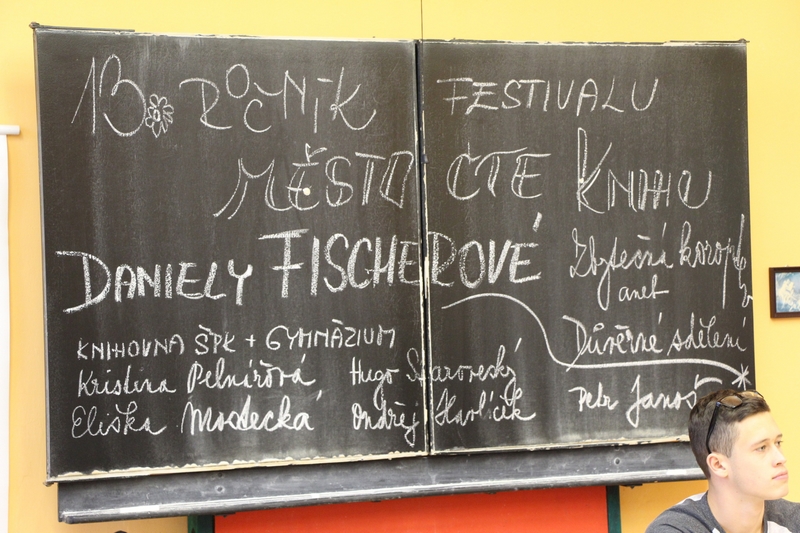 13. ROČNÍK FESTIVALU
MĚSTO ČTE KNIHU
DANIELY FISCHEROVÉ
Zbytečná
anet
Důvěrné sdělení
KNIHOVNA ŠPK + GYMNÁZIUM
Kristina Pelnířová Hugo Staroveský
Eliška Mostecká Ondřej Havlíček
Petr Janoš